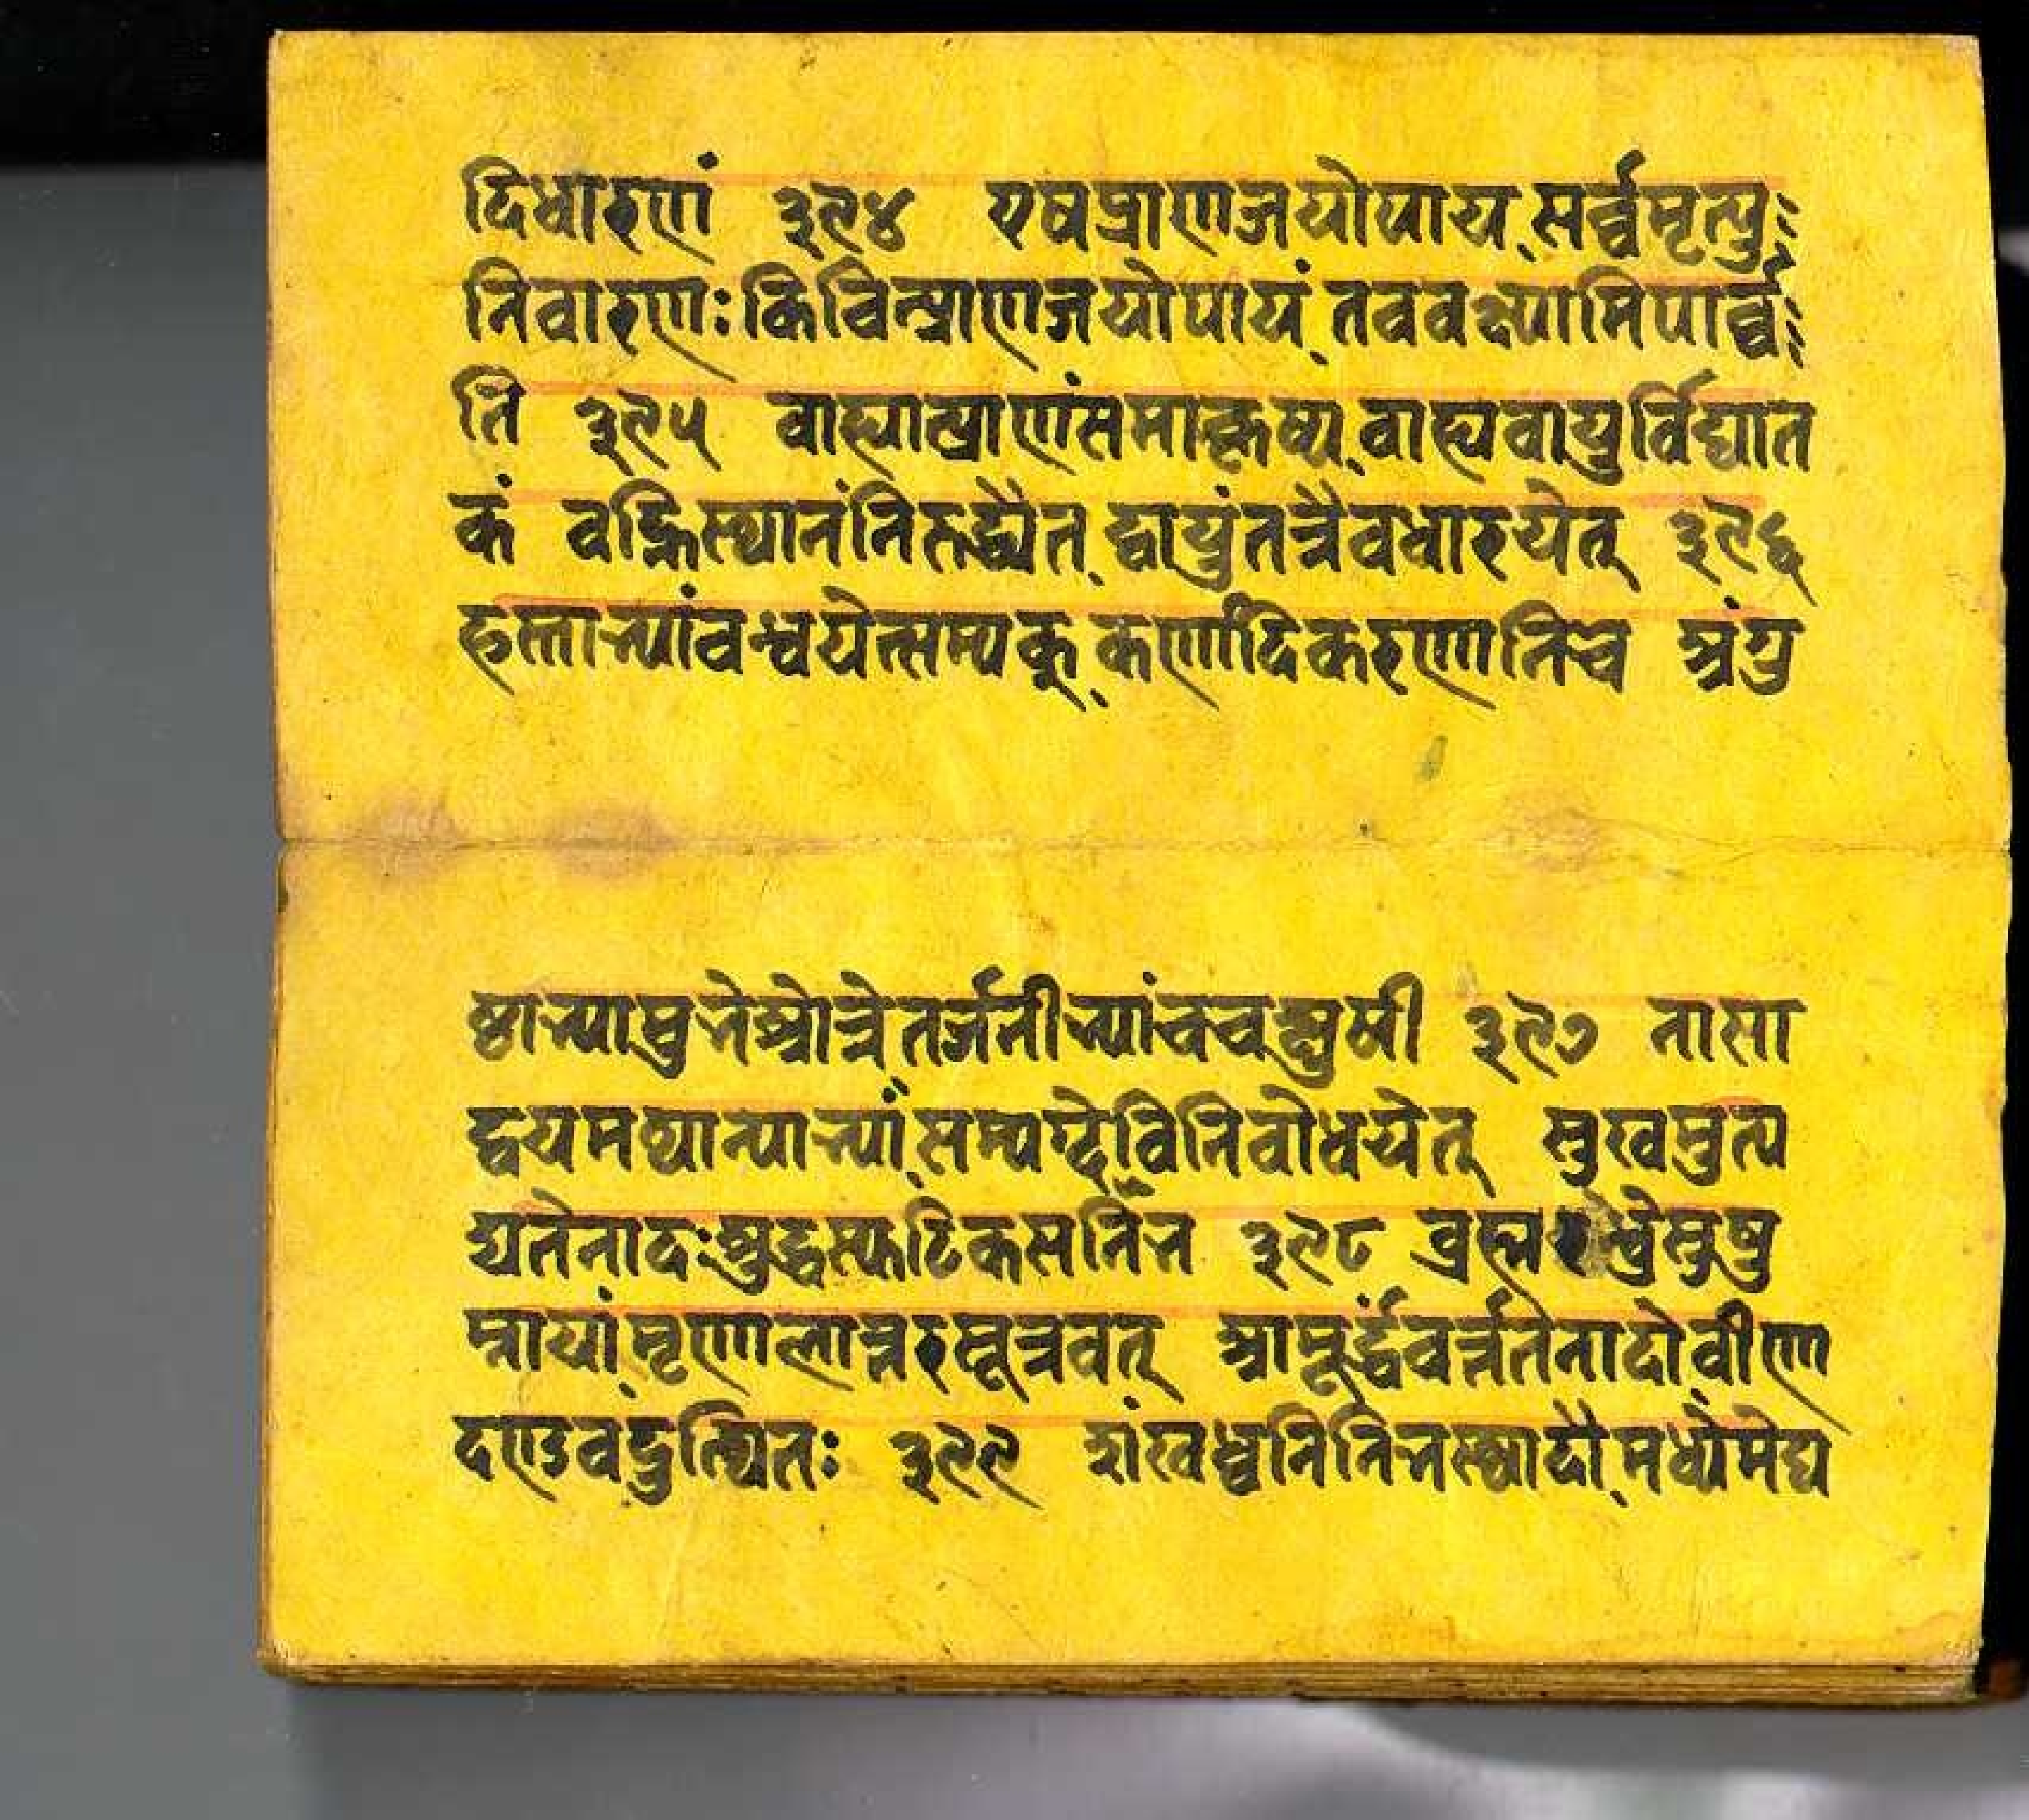 दिधारणं ३९४ एषप्राणजयोपाय सर्व्वमृत्यु
निवारणः किंचित्प्राणजयोपायं तववक्ष्यामिपार्व्व
ति ३९५ वाह्यात्प्राणंसमाकृष्य वाह्यवायुर्विद्यात
कं वह्निस्थानंनिरुद्ध्यैत द्वायुंतत्रैवधारयेत् ३९६
हस्ताभ्यांवन्धयेत्सम्यक् कर्णादिकरणानिच अंगु
ष्ठाभ्यामुभेश्रोत्रे तर्जनीभ्यांचचक्षुषी ३९७ नासा
द्वयमथान्याभ्यां सम्यग्देविनिवोधयेत् सुखमुत्प
द्यतेनादः शुद्धस्फटिकसन्निभ ३९८ व्रह्मरन्ध्रेसुषु
म्नायां मृणालान्तरसूत्रवत् आमूर्द्धंवर्त्ततेनादोवीणा
दण्डवदुत्थितः ३९९ शंखध्वनिनिभस्त्वादौ मध्येमेघ